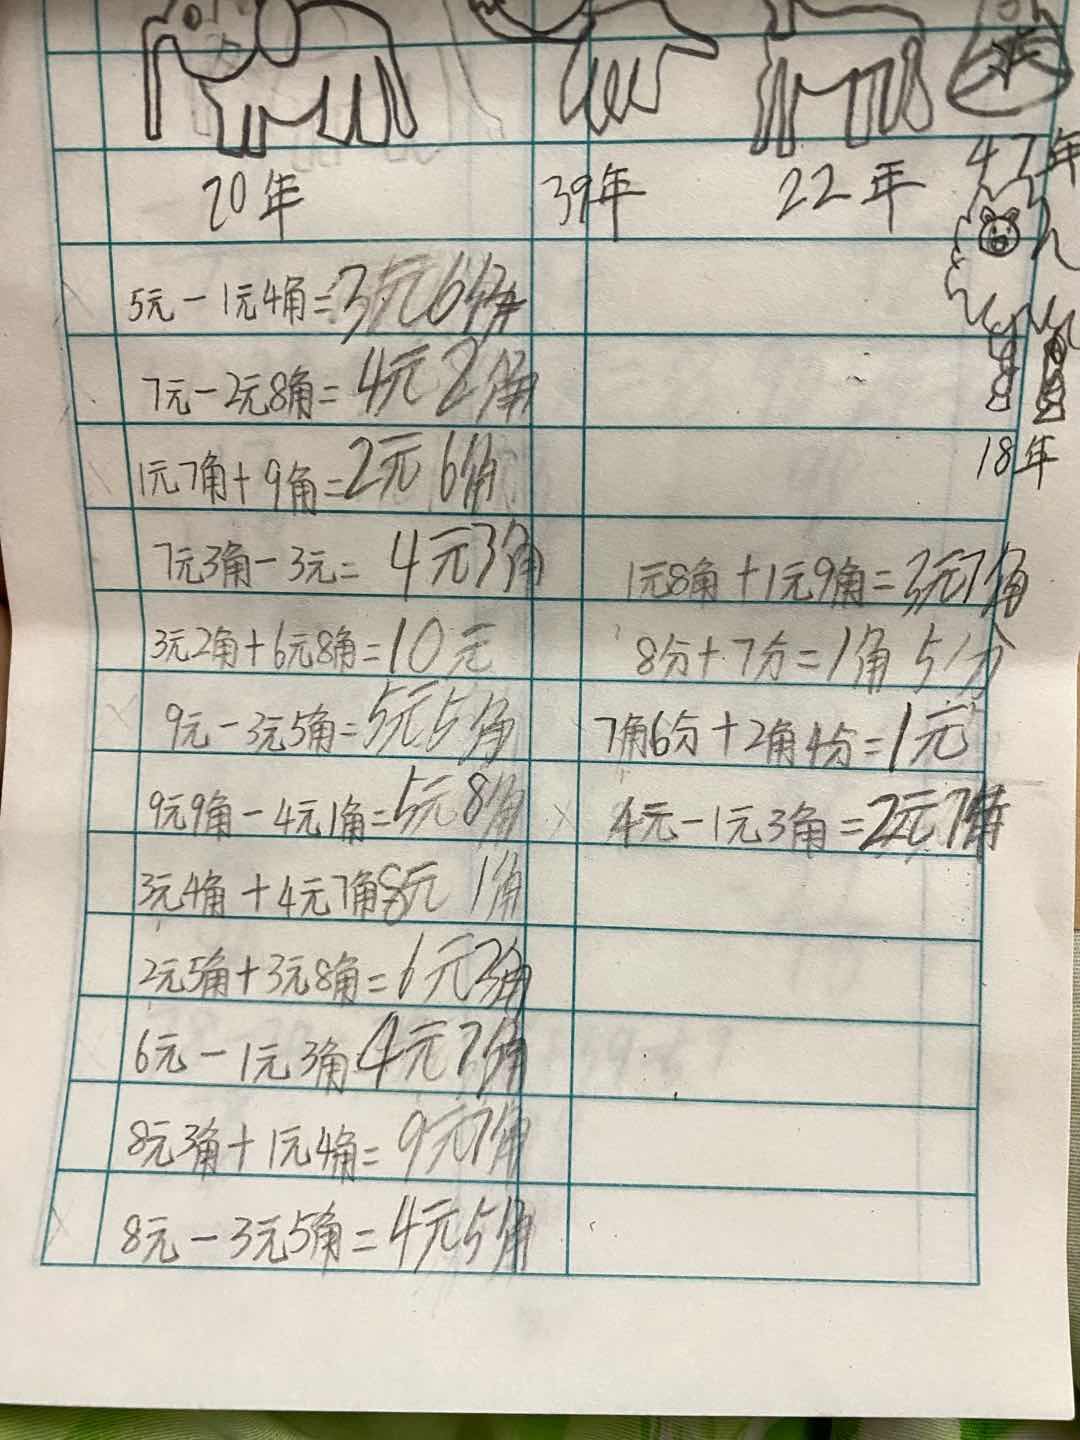 20年 39年 22年 47年
18年
5元－1元4角=3元6角
7元－2元8角=4元2角
1元7角+9角=2元6角
7元3角－3元=4元3角
3元2角+6元8角=10元
9元－3元5角=5元5角
9元9角－4元1角=5元8角
3元4角+4元7角8元1角
2元5角+3元8角=6元3角
6元－1元3角4元7角
8元3角+1元4角=9元7角
8元－3元5角=4元5角
1元8角+1元9角=3元7角
8分+7分=1角5分
7角6分+2角4分=1元
4元－1元3角=2元7角